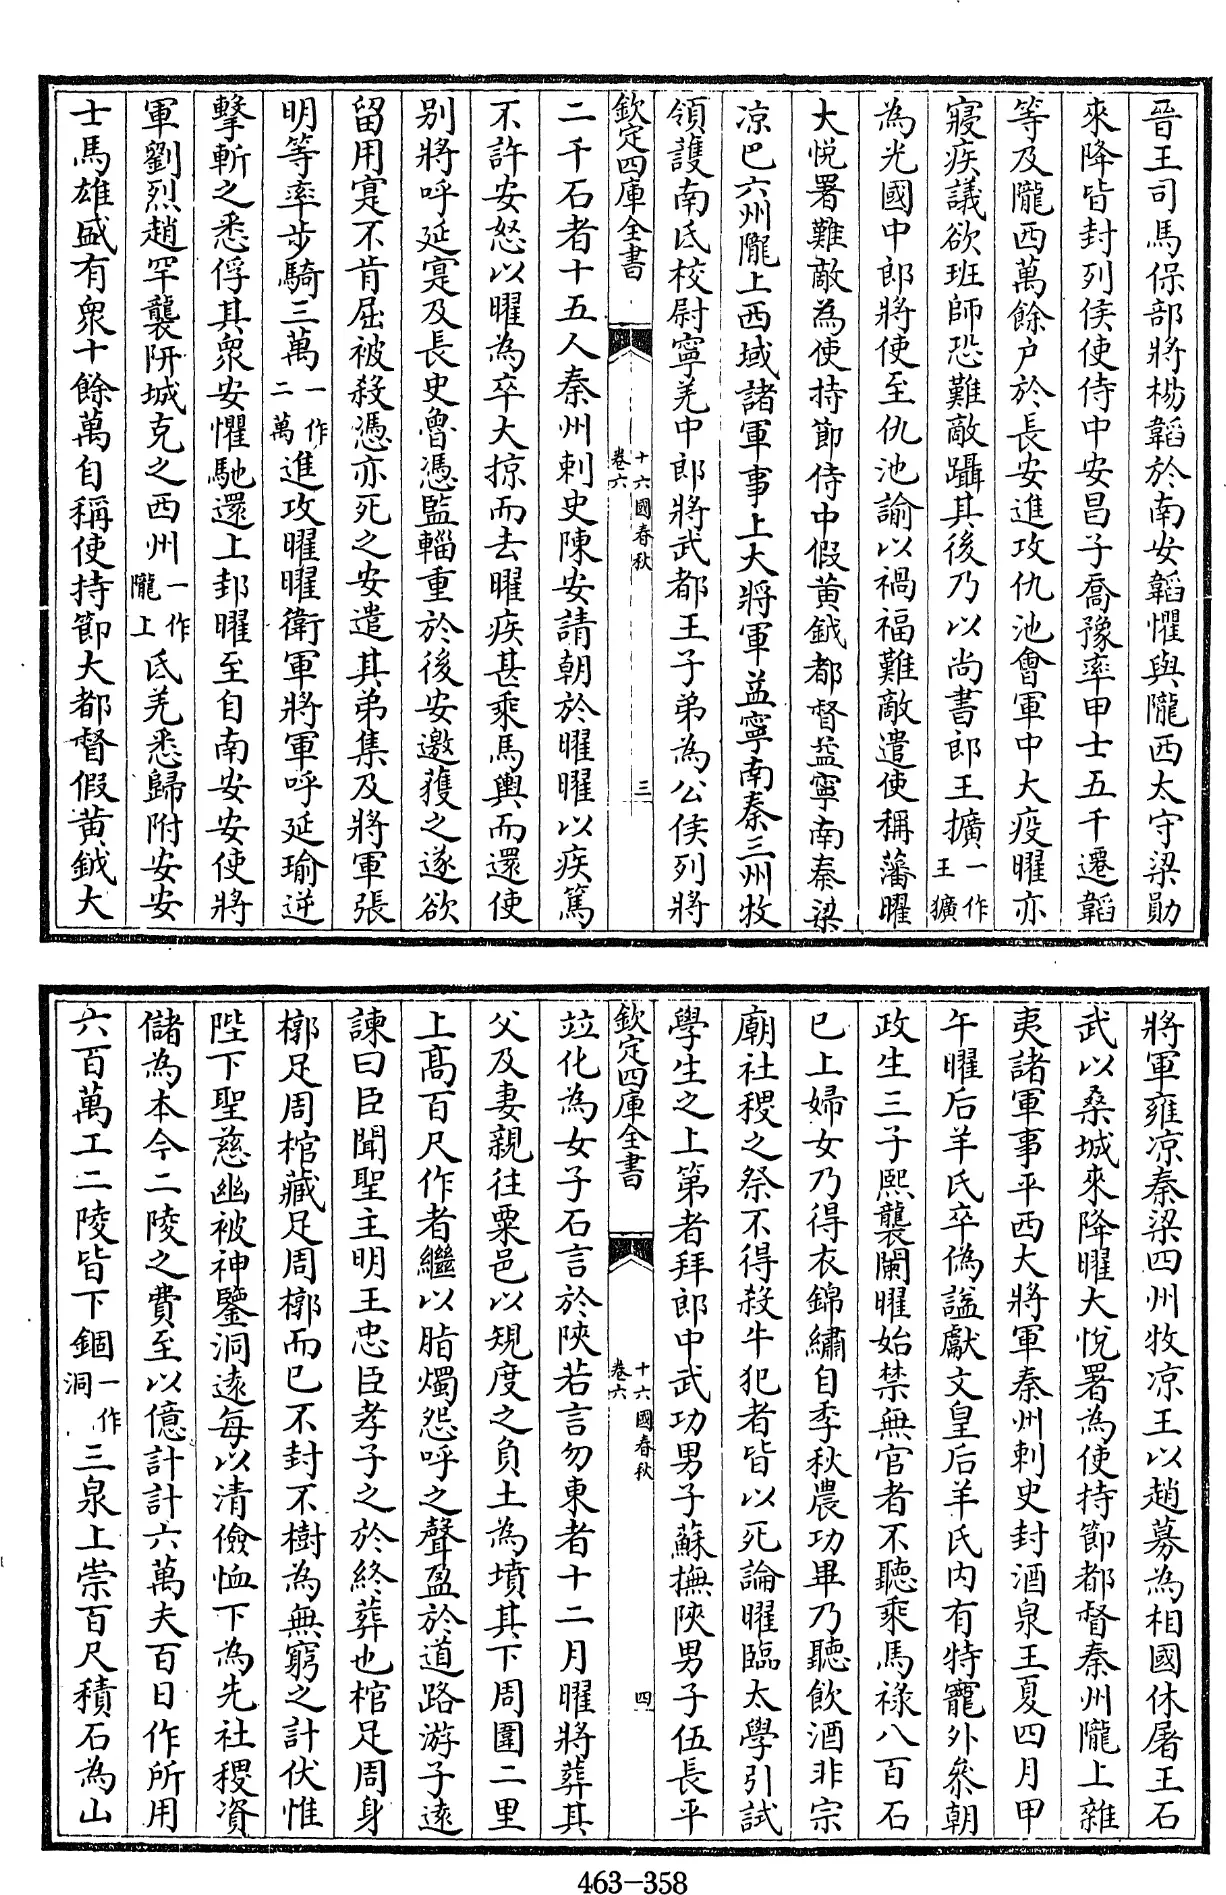 晉王司馬保部將楊韜於南安韜懼與隴西太守梁勛
來降皆封列侯使侍中安昌子喬豫率甲士五千遷韜
等及隴西萬餘户於長安進攻仇池會軍中大疫曜亦
寢疾議欲班師恐難敵躡其後乃以尚書郎王擴一作王獷
為光國中郎將使至仇池諭以禍福難敵遣使稱藩曜
大悅署難敵為使持節侍中假黄鉞都督益寧南秦梁
凉巴六州隴上西域諸軍事上大將軍益寧南秦三州牧
領護南氐校尉寧羌中郎將武都王子弟為公侯列將
欽定四庫全書 十六國春秋卷六 三
二千石者十五人秦州刺史陳安請朝於曜曜以疾篤
不許安怒以曜為卒大掠而去曜疾甚乘馬輿而還使
别將呼延寔及長史魯憑監輜重於後安邀獲之遂欲
留用寔不肯屈被殺憑亦死之安遣其弟集及將軍張
明等率步騎三萬一作二萬進攻曜曜衛軍將軍呼延瑜逆
擊斬之悉俘其衆安懼馳還上邽曜至自南安安使將
軍劉烈趙罕襲汧城克之西州一作隴上氐羌悉歸附安安
士馬雄盛有衆十餘萬自稱使持節大都督假黄鉞大
將軍雍凉秦梁四州牧凉王以趙募為相國休屠王石
武以桑城來降曜大悅署為使持節都督秦州隴上雜
夷諸軍事平西大將軍秦州刺史封酒泉王夏四月甲
午曜后羊氏卒偽諡獻文皇后羊氏内有特寵外叅朝
政生三子熙襲闡曜始禁無官者不聽乘馬禄八百石
已上婦女乃得衣錦繡自季秋農功畢乃聽飲酒非宗
廟社稷之祭不得殺牛犯者皆以死論曜臨太學引試
學生之上第者拜郎中武功男子蘇撫陜男子伍長平
欽定四庫全書 十六國春秋卷六 四
竝化為女子石言於陜若言勿東者十二月曜將葬其
父及妻親往粟邑以規度之負土為墳其下周圍二里
上髙百尺作者繼以脂燭怨呼之聲盈於道路游子遠
諫曰臣聞聖主明王忠臣孝子之於終葬也棺足周身
槨足周棺藏足周槨而已不封不樹為無窮之計伏惟
陛下聖慈幽被神鑒洞遠每以清儉恤下為先社稷資
儲為本今二陵之費至以億計計六萬夫百日作所用
六百萬工二陵皆下錮一作洞三泉上崇百尺積石為山
463-358